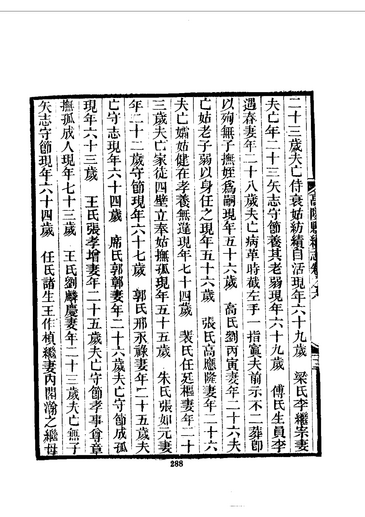 二十三歲夫亡侍衰姑紡績自活現年六十九歲　梁氏李繼棠妻
夫亡年二十三矢志守節養其老弱現年六十九歲　傅氏生員李
遇春妻年二十八歲夫亡病革時截左手一指寘夫前示不二葬卽
以殉無子撫姪爲嗣現年五十六歲　高氏劉丙寅妻年二十六夫
亡姑老子弱以身任之現年五十六歲　張氏高應隆妻年二十六
夫亡孀姑健在孝養無違現年七十四歲　裴氏任廷樞妻年二十
三歲夫亡家徒四壁立奉姑撫孤現年五十五歲　朱氏張如元妻
年二十二歲守節現年六十七歲　郭氏邢永祿妻年二十五歲夫
亡守志現年六十四歲　席氏郭鄣妻年二十六歲夫亡守節成孤
現年六十三歲　王氏張孝增妻年二十五歲夫亡守節孝事尊章
撫孤成人現年七十三歲　王氏劉麟慶妻年二十三歲夫亡無子
矢志守節現年六十四歲　任氏諸生王作楨繼妻內閣瀚之繼母
高陵縣續志卷之
288